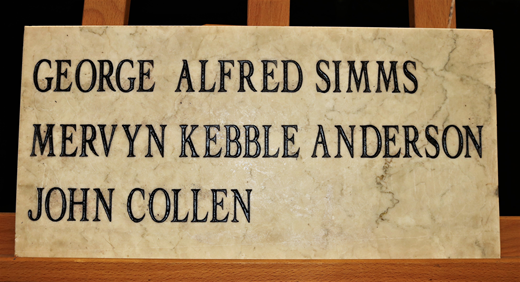 GEORGE ALFRED SIMMS
MERVYN KEBBLE ANDERSON
JOHN COLLEN